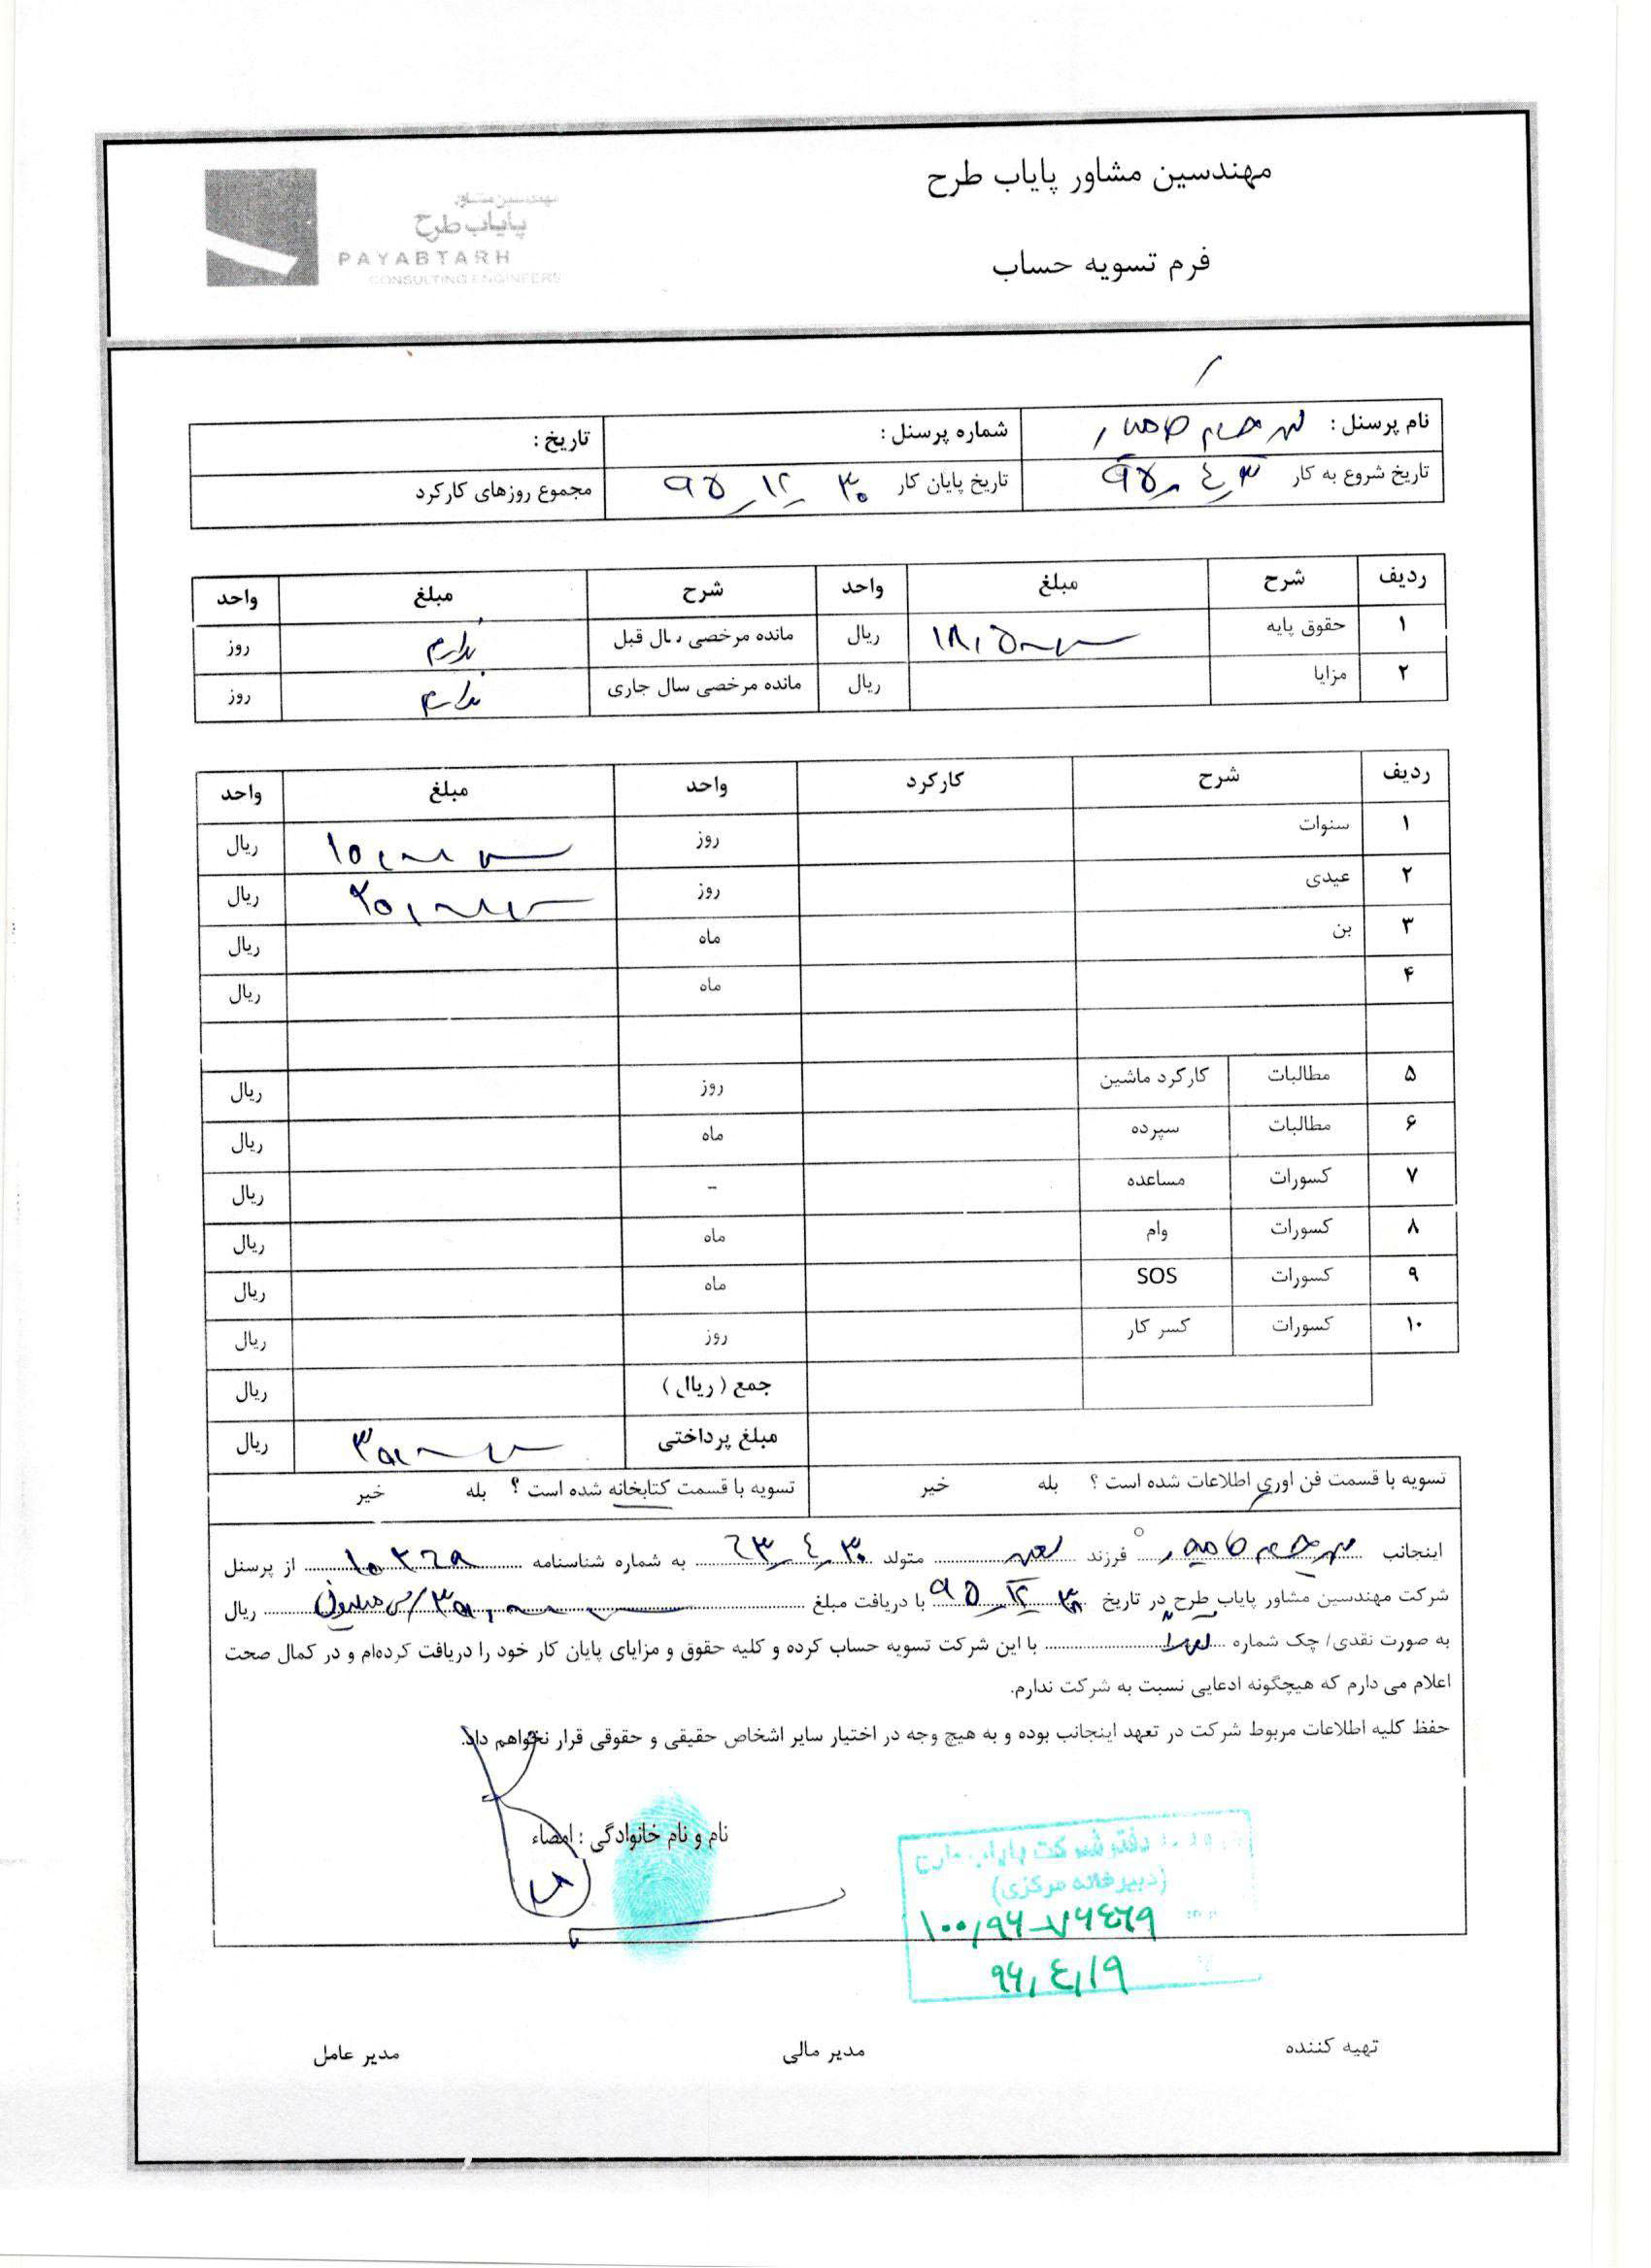 مهندسین مشاور پایاب طرح
فرم تسویه حساب
مهندسین مشاور
پایاب طرح
PAYABTARH
CONSULTING ENGINEERS
نام پرسنل : شماره پرسنل : تاریخ :
تاریخ شروع به کار ۹۵٫۴٫۳ تاریخ پایان کار ۹۵٫۱۲٫۳۰ مجموع روزهای کارکرد
ردیف شرح مبلغ واحد شرح مبلغ واحد
۱ حقوق پایه ریال مانده مرخصی سال قبل ندارم روز
۲ مزایا ریال مانده مرخصی سال جاری ندارم روز
ردیف شرح کارکرد واحد مبلغ واحد
۱ سنوات روز ریال
۲ عیدی روز ریال
۳ بن ماه ریال
۴ ماه ریال
۵ مطالبات کارکرد ماشین روز ریال
۶ مطالبات سپرده ماه ریال
۷ کسورات مساعده - ریال
۸ کسورات وام ماه ریال
۹ کسورات SOS ماه ریال
۱۰ کسورات کسر کار روز ریال
جمع (ریال) ریال
مبلغ پرداختی ریال
تسویه با قسمت فن اوری اطلاعات شده است ؟ بله خیر تسویه با قسمت کتابخانه شده است ؟ بله خیر
اینجانب فرزند متولد ۶۳٫۴٫۳۰ به شماره شناسنامه از پرسنل
شرکت مهندسین مشاور پایاب طرح در تاریخ با دریافت مبلغ ریال
به صورت نقدی/ چک شماره با این شرکت تسویه حساب کرده و کلیه حقوق و مزایای پایان کار خود را دریافت کرده‌ام و در کمال صحت
اعلام می دارم که هیچگونه ادعایی نسبت به شرکت ندارم.
حفظ کلیه اطلاعات مربوط شرکت در تعهد اینجانب بوده و به هیچ وجه در اختیار سایر اشخاص حقیقی و حقوقی قرار نخواهم داد.
نام و نام خانوادگی : امضاء
دفتر شرکت پایاب طرح
(دبیرخانه مرکزی)
۱۰۰٫۹۶-۷۶۴۶۹
۹۶٫۴٫۱۹
تهیه کننده مدیر مالی مدیر عامل